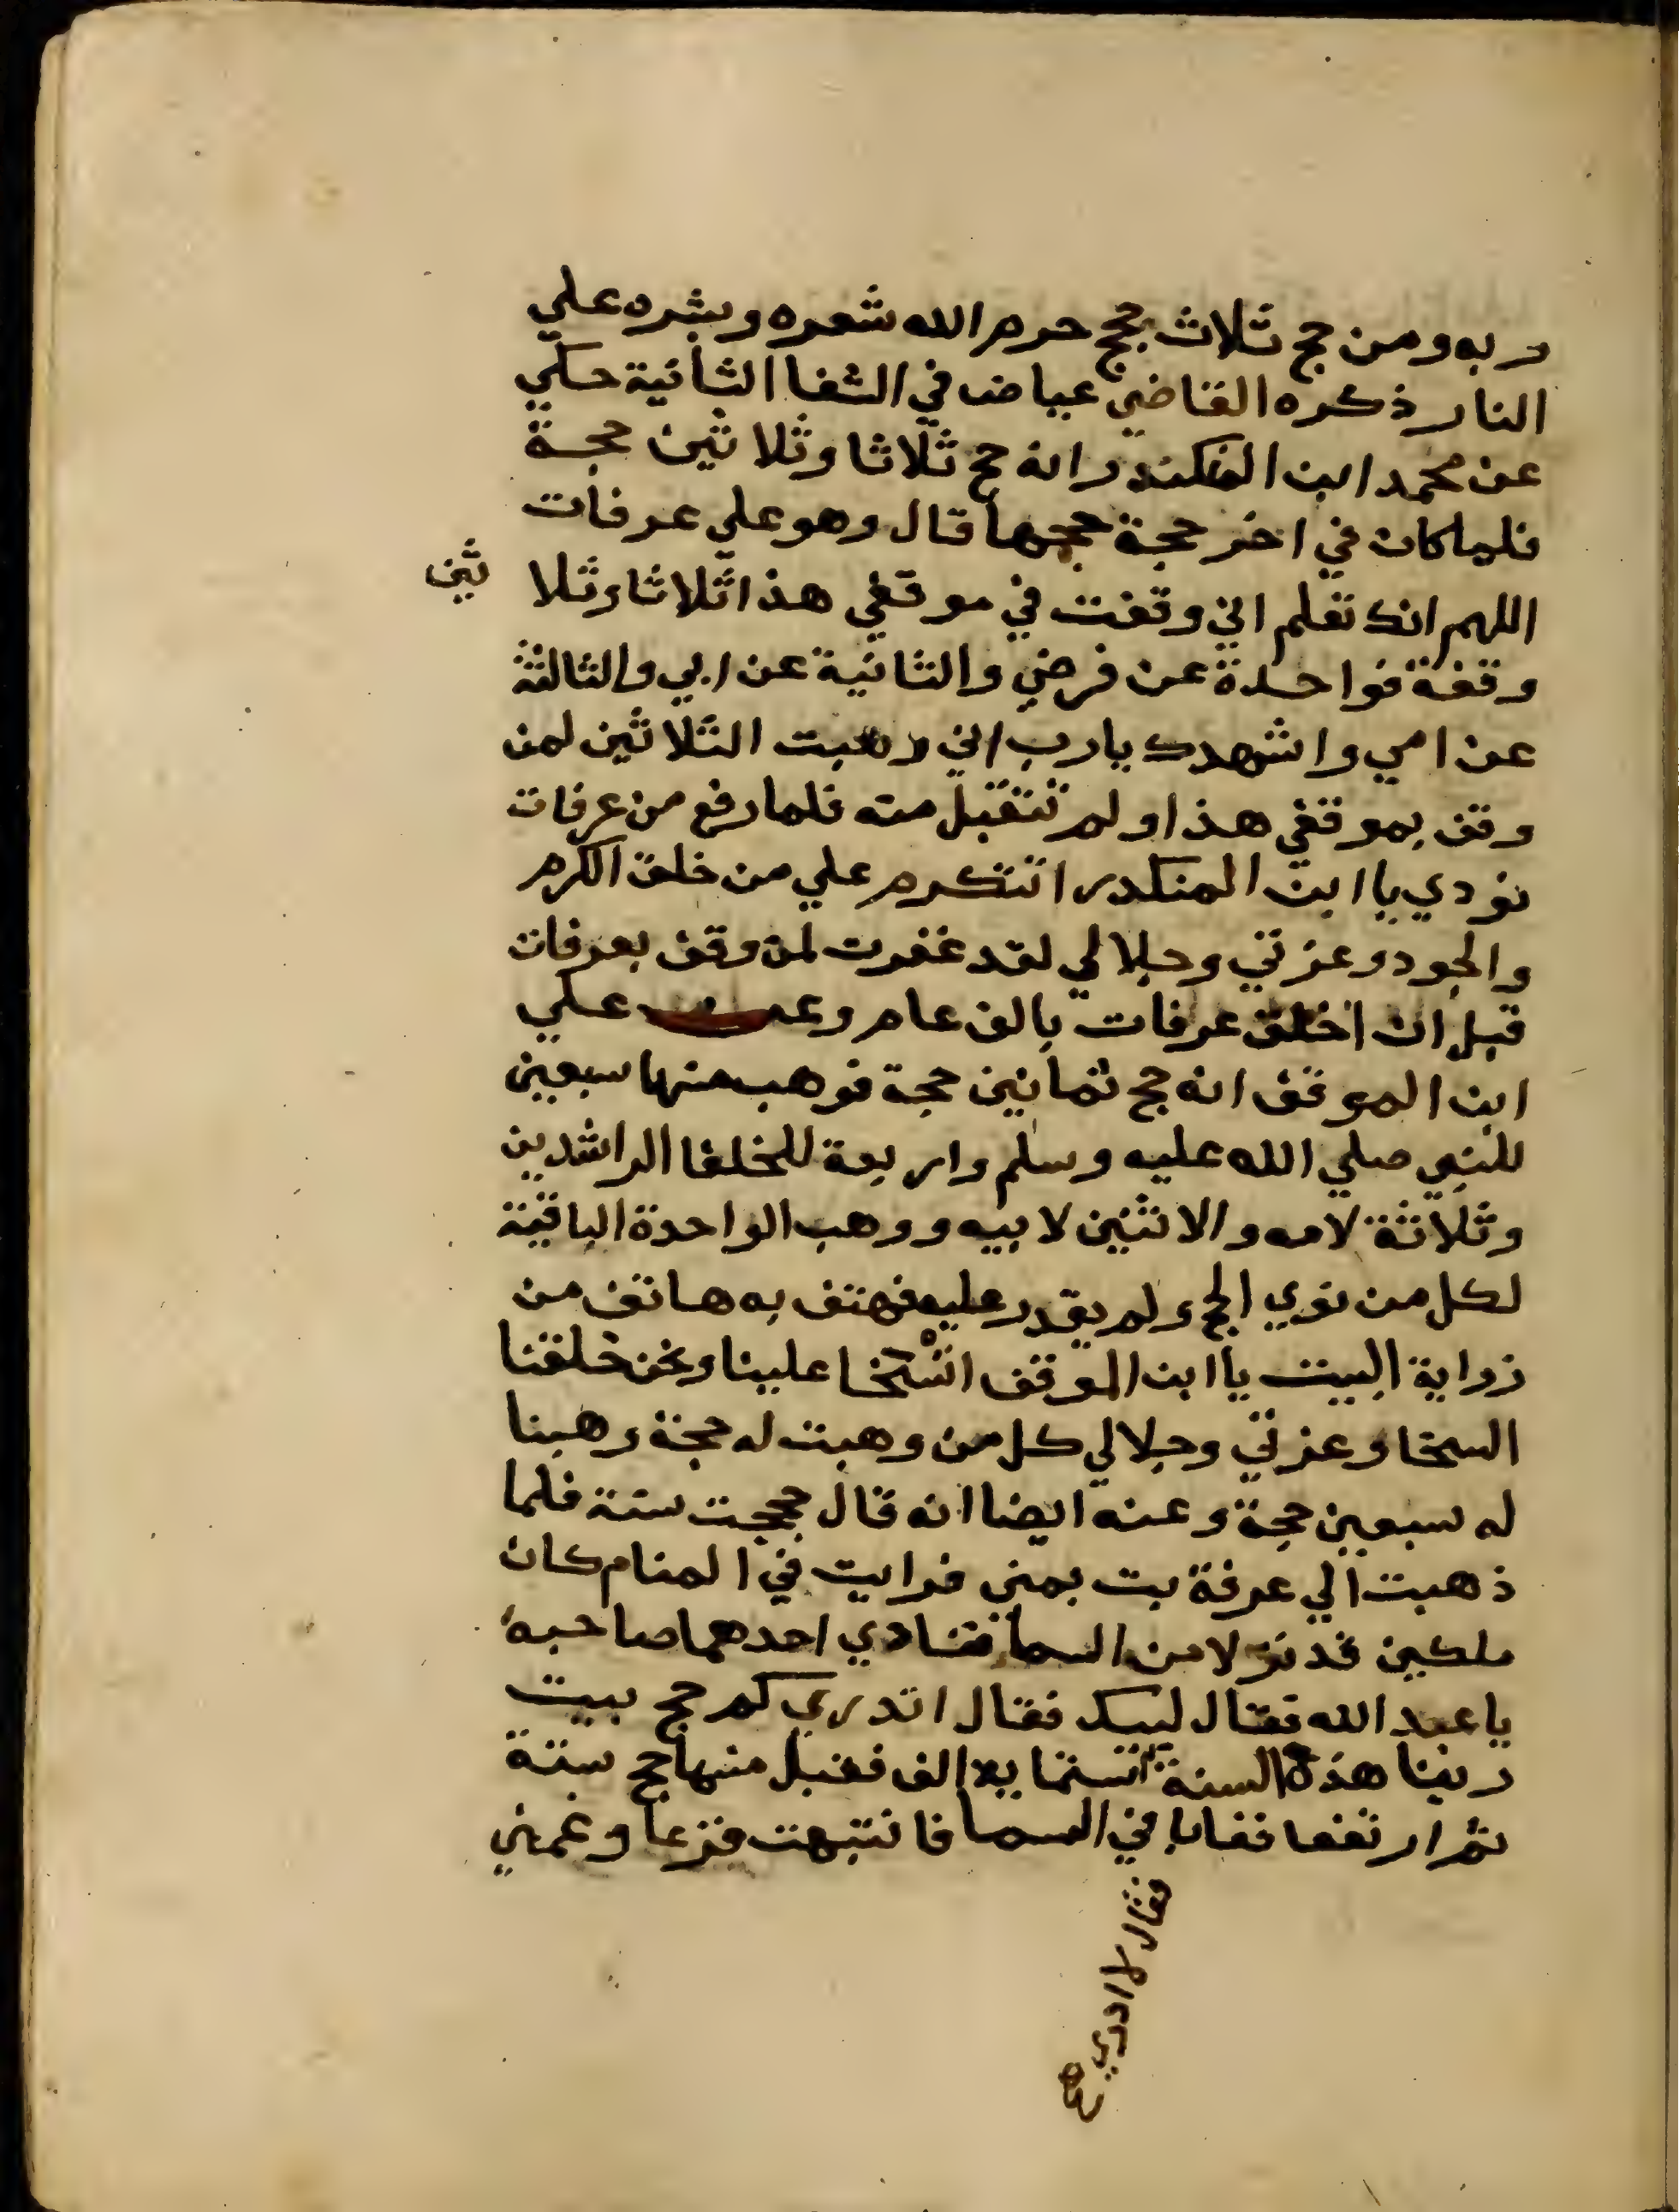 ربه ومن حج ثلاث حجج حرم الله شعره وبشره علي
النار ذكره القاضي عياض في الشفا الثانية حكي
عن محمد ابن المنكندر انه حج ثلاثا وثلاثين حجة
فلما كان في اخر حجة حججها قال وهو علي عرفات
اللهم انك تعلم اني وقفت في موقفي هذا ثلاثا وثلاثين
وقفة فواحدة عن فرضي والثانية عن ابي والثالثة
عن امي واشهدك يارب اني وهبت الثلاثين لمن
وقف بموقفي هذا ولم تتقبل منه فلما رفع من عرفات
نودي يا ابن المنكدر اتتكرم علي من خلق الكرم
والجود وعزتي وجلالي لقد غفرت لمن وقف بعرفات
قبل ان اخلق عرفات بالف عام وعن علي
ابن الموفق انه حج ثمانين حجة فوهب منها سبعين
للنبي صلي الله عليه وسلم واربعة للخلفا الراشدين
وثلاثة لامه والاثنين لابيه ووهب الواحدة الباقية
لكل من نوي الحج ولم يقدر عليه فهتف به هاتف من
زواية البيت يا ابن الموفق اتتسخا علينا ونحن خلقنا
السخا وعزتي وجلالي كل من وهبت له حجة وهبنا
له سبعين حجة وعنه ايضا انه قال حججت سنة فلما
ذهبت الي عرفة بت بمني فرايت في المنام كان
ملكين قد نزلا من السما فنادي احدهما صاحبه
يا عبد الله فقال لبيك فقال اتدري كم حج بيت
ربنا هذه السنة ستماية الف فقبل منها حج ستة
ثم ارتفعا فغابا في السما فانتبهت فزعا وغمني
فقال لا ادري صح